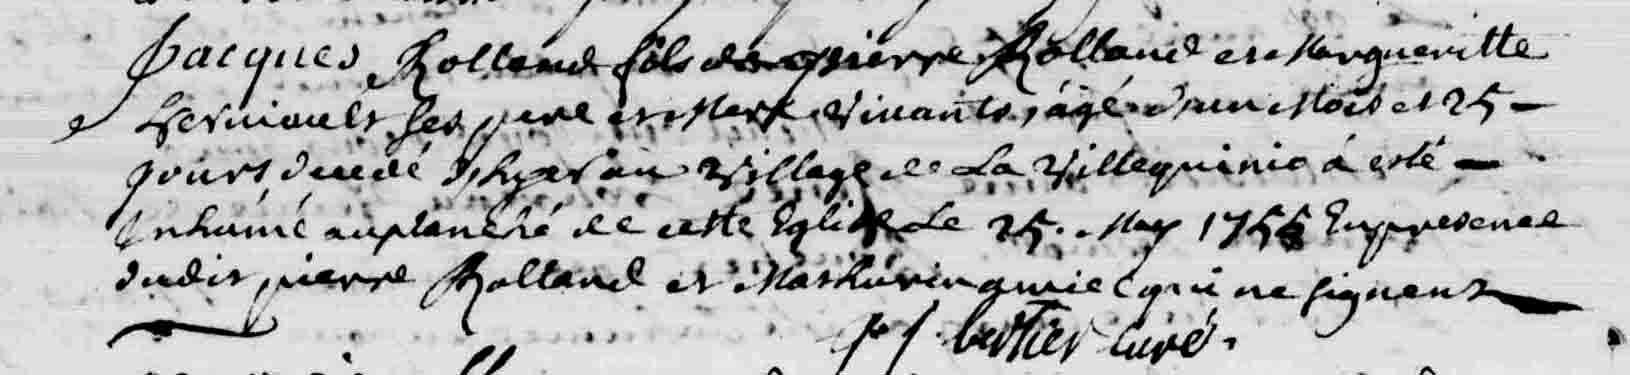 Jacques Rolland fils de pierre Rolland et Margueritte
ses pere et Mere Vivants, agé d'un Mois et 25
jours, decedé d'hyer au Village de La Villequinio à esté
Inhumé au planché de cette Eglise Le 25. May 1756 En presence
dudit pierre Rolland et Mathurin qui ne signent
bertier curé.